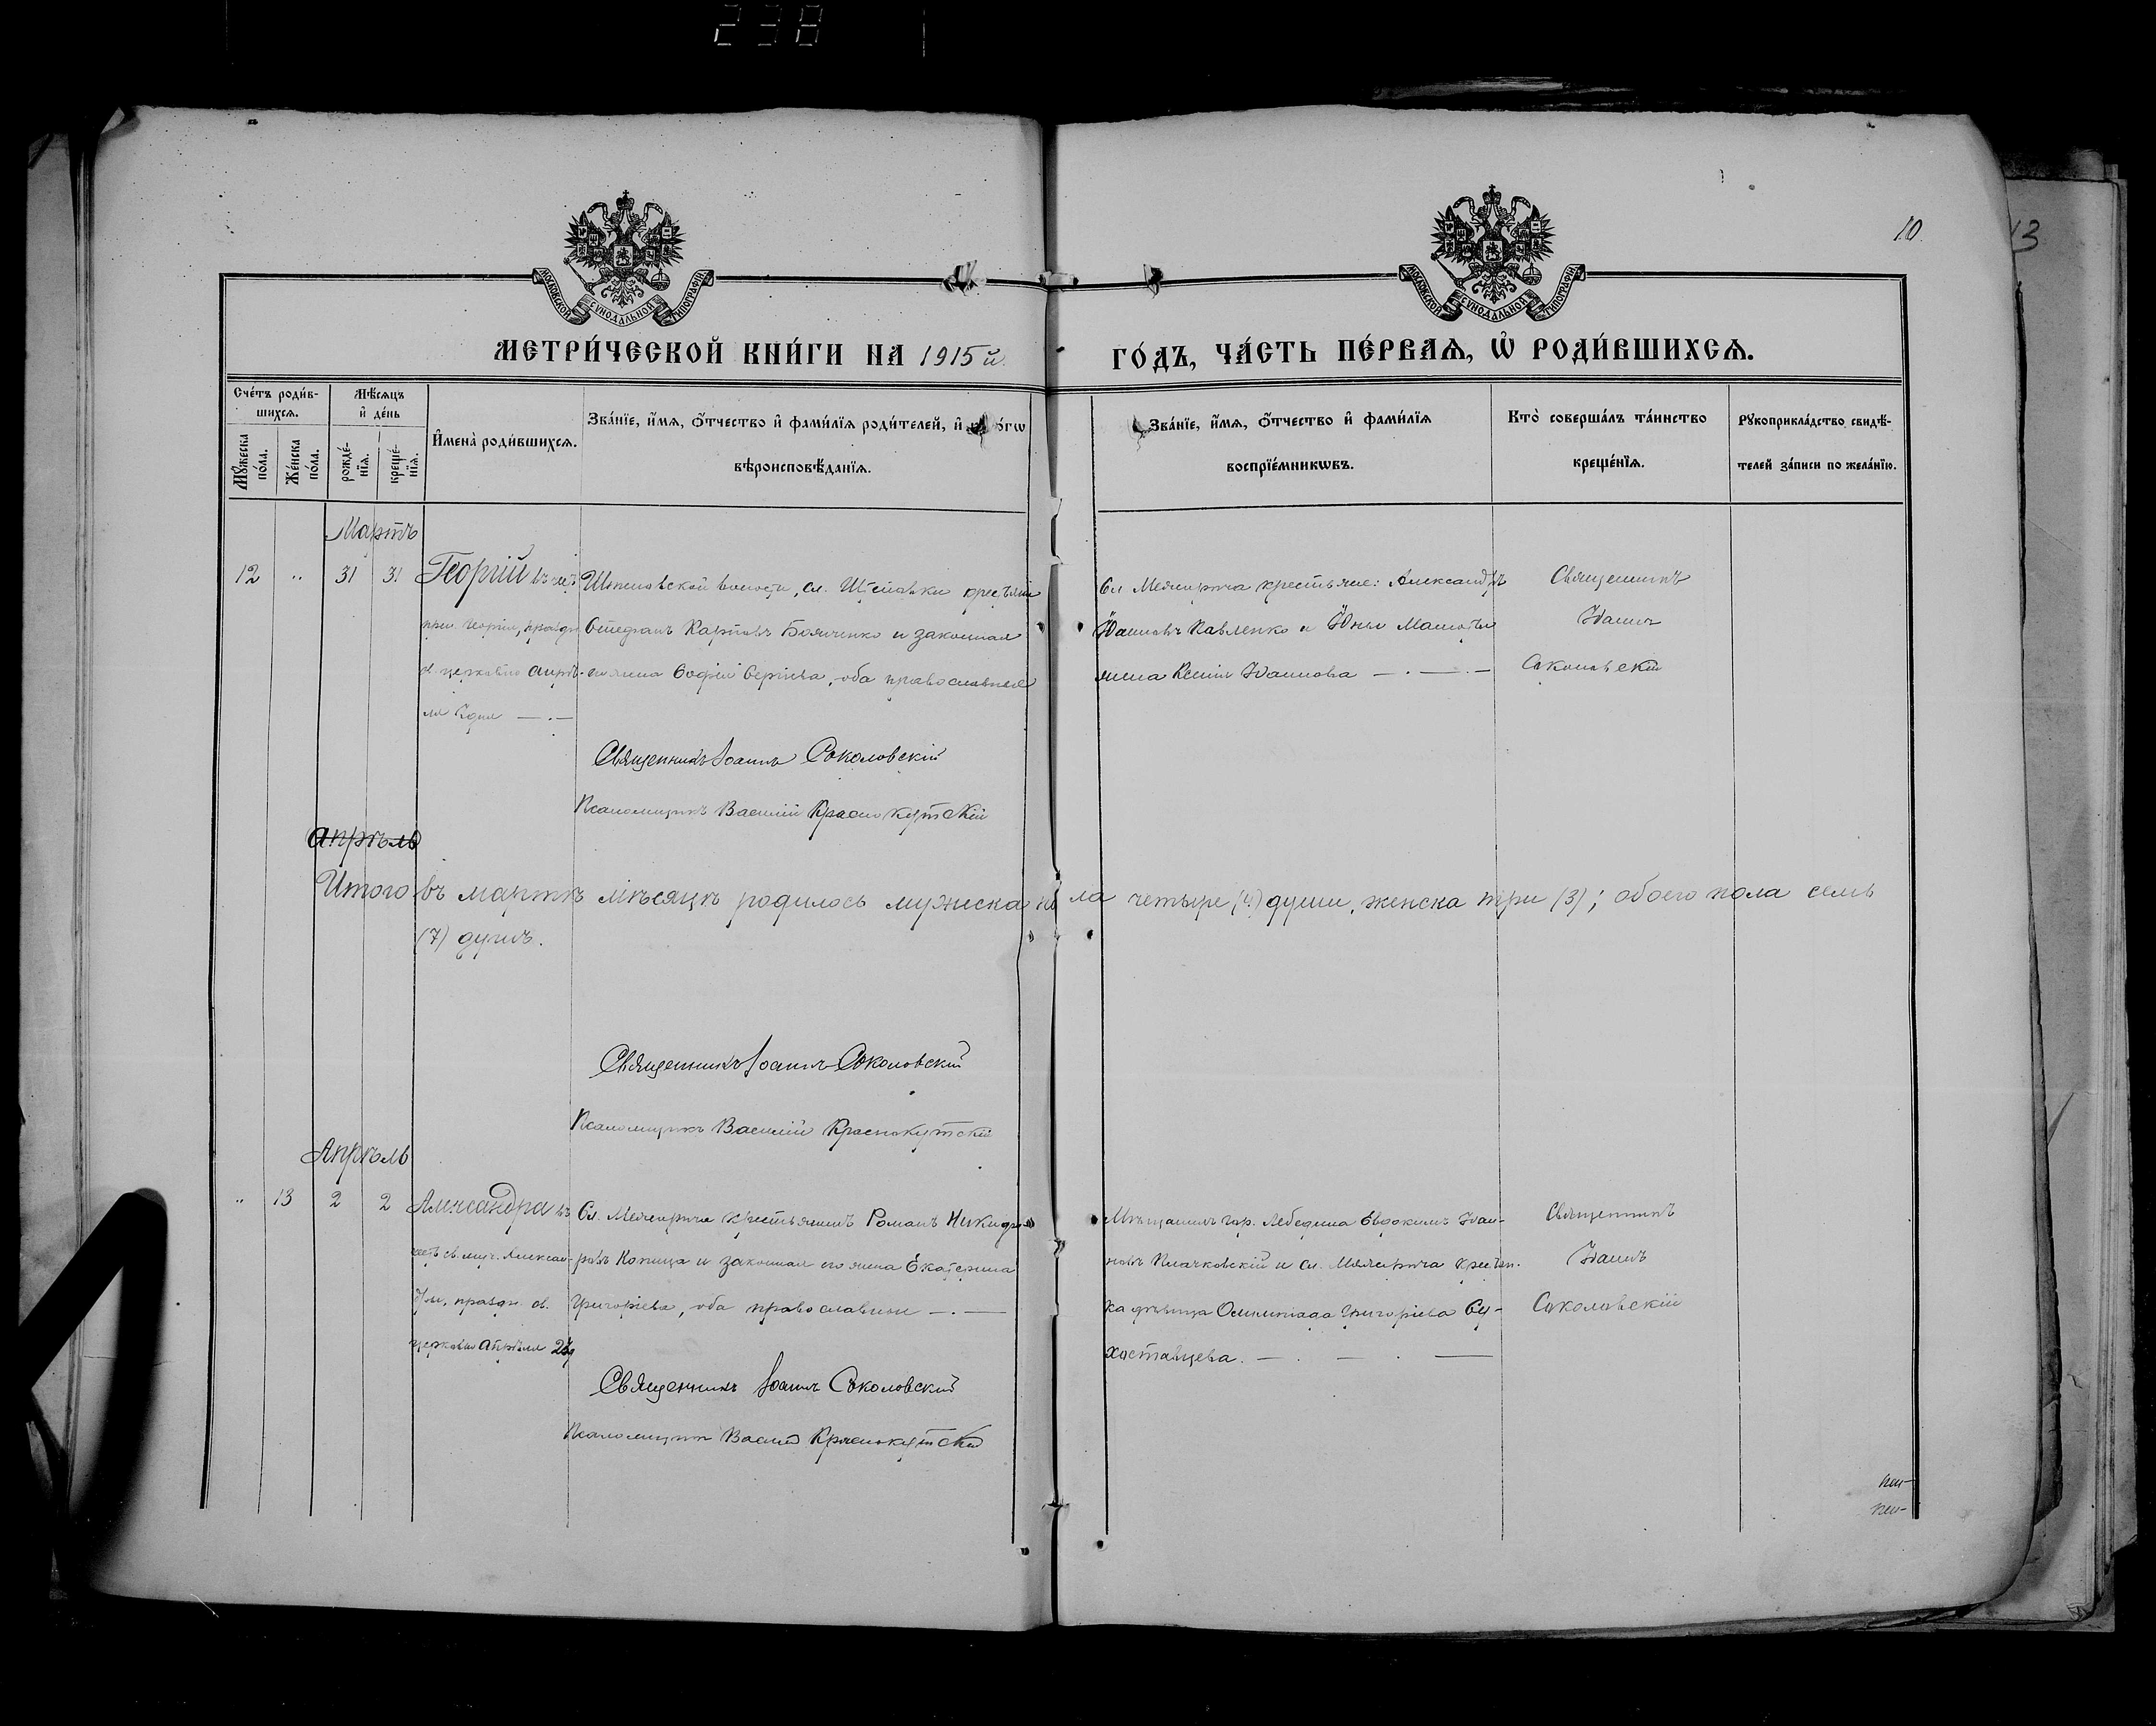 238
10.
13
МОСКОВСКОЙ СѴНОДАЛЬНОЙ ТИПОГРАФІИ
МОСКОВСКОЙ СѴНОДАЛЬНОЙ ТИПОГРАФІИ
МЕТРИ́ЧЕСКОЙ КНИ́ГИ НА 1915 й.
ГО́ДЪ, ЧА́СТЬ ПЕ́РВАѦ, Ѡ҆ РОДИ́ВШИХСѦ.
Сче́тъ роди́в-
шихсѧ.
Мꙋ́жеска по́ла.
Же́нска по́ла.
Мѣ́сѧцъ
и҆ де́нь
рожде́-
нїѧ.
креще́-
нїѧ.
И҆мена̀ роди́вшихсѧ.
Зва́нїе, и҆́мѧ, ѻ҆́тчество и҆ фами́лїѧ роди́телей, и҆
вѣроисповѣ́данїѧ.
Зва́нїе, и҆́мѧ, ѻ҆́тчество и҆ фами́лїѧ
воспрїе́мникѡвъ.
Кто̀ соверша́лъ та́инство
креще́нїѧ.
Рꙋкоприкла́дство свидѣ́-
телей за́писи по жела́нїю.
Мартъ
12 " 31 31 Георгій въ
волости, сл. крест
Стефанъ Карповъ и законная
церковью апрѣ- Софія оба православные
ля
Сл. Межирича крестьяне: Александръ
Павленко и
Ксенія Іоаннова
Священникъ
Іоаннъ
Соколовскій
Священникъ Іоаннъ Соколовскій
Псаломщикъ Василій Краснокутскій
Апрѣль
Итого въ мартѣ мѣсяцѣ родилось мужеска пола четыре (4) души, женска три (3); обоего пола семь
(7) душъ.
Священникъ Іоаннъ Соколовскій
Псаломщикъ Василій Краснокутскій
Апрѣль
" 13 2 2 Александра въ
честь св. муч. Алексан-
дры, праздн. св.
церковью Апрѣля 23
Сл. Межирича крестьянинъ Романъ Никифо-
ровъ Копица и законная его жена Екатерина
Григоріева, оба православные
Мѣщанинъ гор. Лебедина Евдокимъ Іоан-
новъ и сл. Межирича крестьян-
ка дѣвица Олимпіада Григоріева Су-
хоставцева.
Священникъ
Іоаннъ
Соколовскій
Священникъ Іоаннъ Соколовскій
Псаломщикъ Василій Краснокутскій